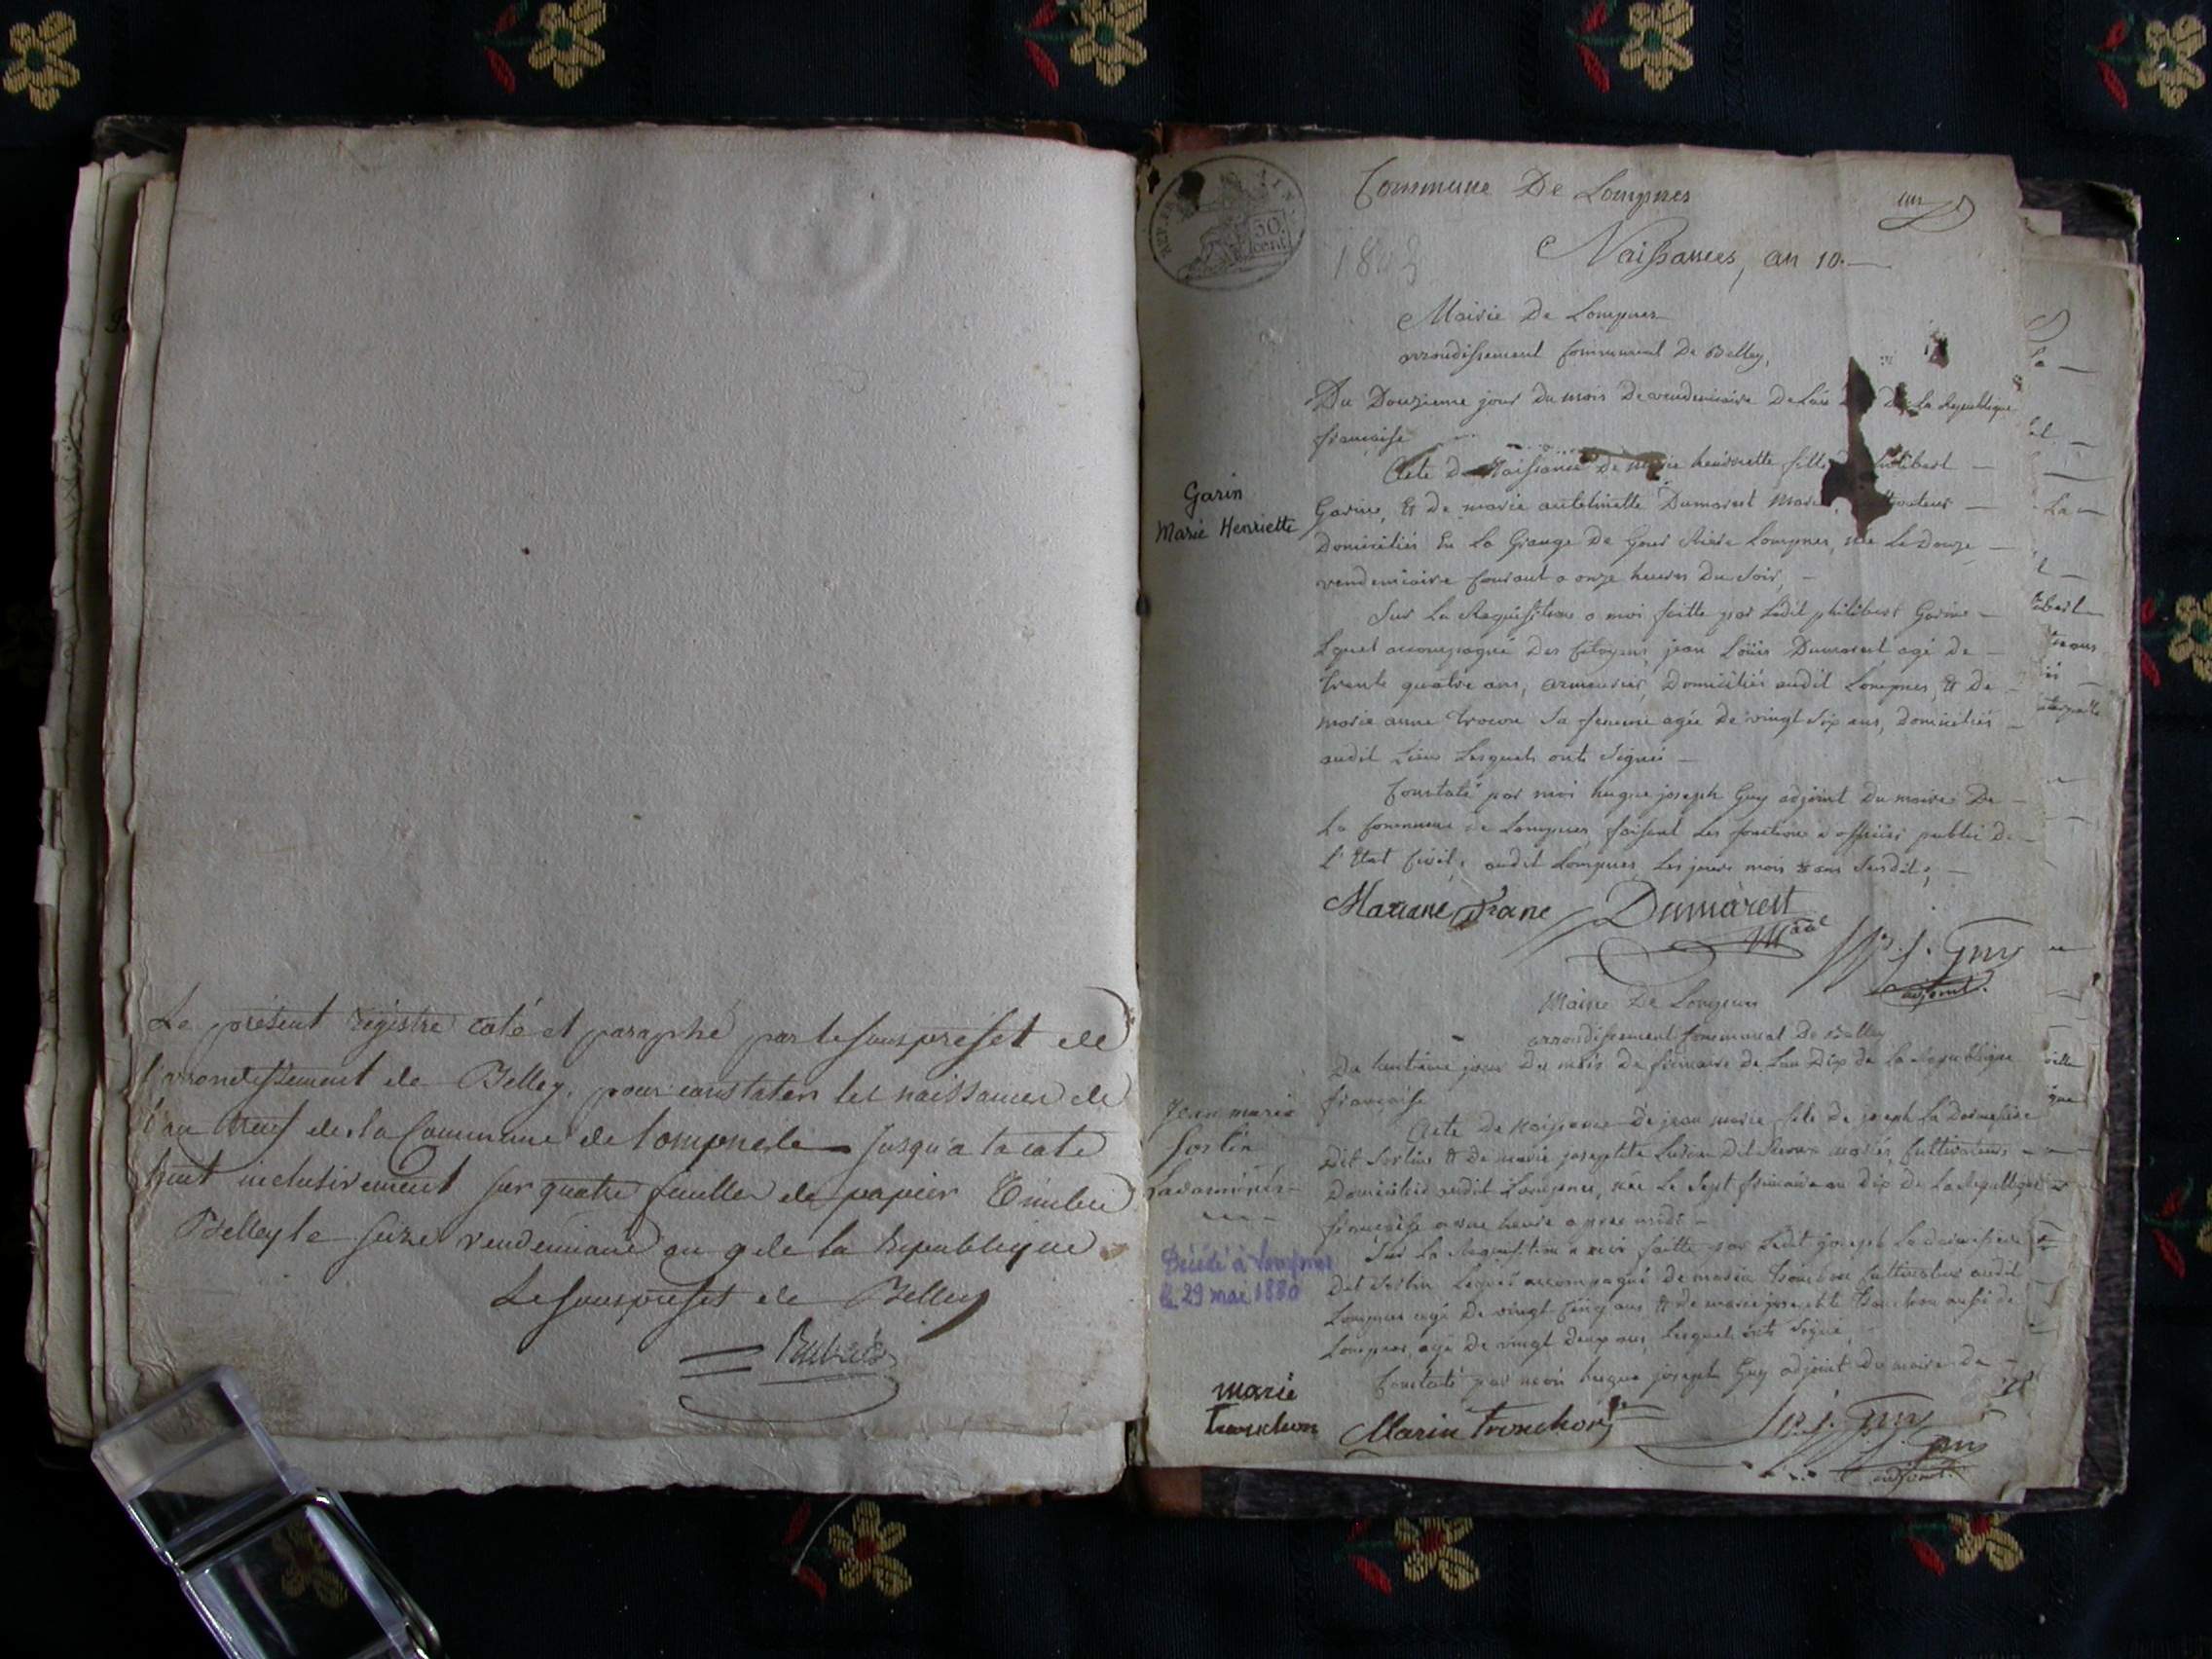 Le présent registre coté et paraphé par le souspréfet de
l'arrondissement de Belley, pour constater les naissances de
l'an neuf de la Commune de Lompnes jusqu'a la cote
huit inclusivement sur quatre feuilles de papier Timbré
Belley le seize vendemiaire an 9 de la Republique
Le souspréfet de Belley
Commune De Lompnes
un
50 cent
Naissances, an 10.
Mairie De Lompnes
arrondissement Communal De Belley,
Du Douzieme jour du mois De vendemiaire De L'an De La Republique
française
Garin
Marie Henriette
Acte de Naissance De marie henriette fille
Garin, & de marie antoinette Dumarest
Domiciliés En La Grange De Lompnes, née Le Douze
vendemiaire Courant a onze heures Du Soir,
Sur La Requisition a moi faitte par Ledit philibert Garin
Lequel accompagné Des Citoyens jean Loüis Dumarest agé de
trente quatre ans, armurier, Domiciliés audit Lompnes, & De
marie anne Sa femme agée De vingt Six ans, domiciliés
audit Lieu Lesquels ont Signé
Constaté par moi hugue joseph Guy adjoint Du maire De
La Commune de Lompnes faisant Les fonctions d'officier public De
l'Etat Civil, audit Lompnes Les jours mois & ans Susdit,
Mariane Dumarest
h. j. Guy
adjoint.
Mairie De Lompnes
arrondissement Communal De Belley
Du huitieme jour Du mois De frimaire de L'an Dix de la Republique
française
Jean marie
Sorlin
Acte De Naissance De jean marie fils de joseph
Dit Sorlin & de marie josephte Dit mariés Cultivateurs
Domiciliés audit Lompnes, née Le Sept frimaire an Dix De La Republique
française a une heure apres midi
Décédé à Lompnes
le 29 mai 1880
Sur La Requisition a moi faitte par Ledit joseph
Dit Sorlin Lequel accompagné De marin tronchon Cultivateur audit
Lompnes agé De vingt Cinq ans & de marie josephte tronchon aussi de
Lompnes, agé De vingt Deux ans, Lesquels ont Signé,
Constaté par moi hugue joseph Guy adjoint du maire De
marie
tronchon
Marin tronchon
h. j. Guy
adjoint.